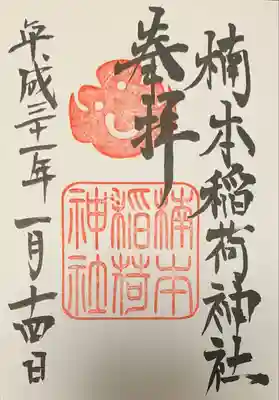 楠本稲荷神社
奉拝
楠本
稲荷
神社
平成三十一年一月十四日